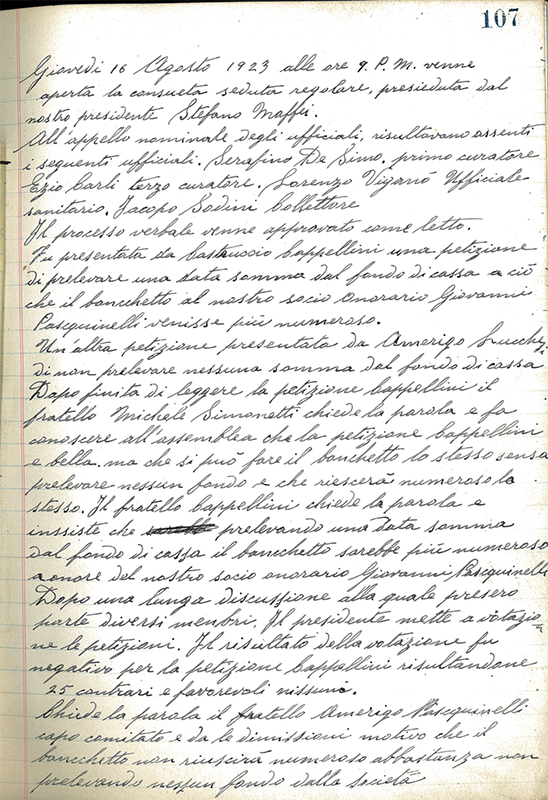 107
Giovedi 16 Agosto 1923 alle ore 9. P.M. venne
aperta la consueta seduta regolare, presieduta dal
nostro presidente Stefano Maffei.
All'appello nominale degli ufficiali, risultavano assenti
i seguenti ufficiali. Serafino De Simo. primo curatore
Ezio Carli terzo curatore. Lorenzo Viganó Ufficiale
sanitario. Jacopo Sodini Collettore
Il processo verbale venne approvato come letto.
Fu presentata da Castruccio Cappellini una petizione
di prelevare una data somma dal fondo di cassa a ciò
che il bancchetto al nostro socio onorario Giovanni
Pascquinelli venisse più numeroso.
Un'altra petizione presentata da Amerigo Lucchesi
di non prelevare nessuna somma dal fondo di cassa
Dopo finita di leggere la petizione Cappellini il
fratello Michele Simonetti chiede la parola e fa
conoscere all'assemblea che la petizione Cappellini
e bella. ma che si può fare il banchetto lo stesso sensa
prelevare nessun fondo e che riescerá numeroso lo
stesso. Il fratello Cappellini chiede la parola e
inssiste che prelevando una data somma
dal fondo di cassa il bancchetto sarebbe più numeroso
a onore del nostro socio onorario Giovanni Pascquinelli
Dopo una lunga discussione alla quale presero
parte diversi menbri. Il presidente mette a votazio=
ne le petizioni. Il risultato della votazione fu
negativo per la petizione Cappellini risultandone
25 contrari e favorevoli nissuni.
Chiede la parola il fratello Amerigo Pascquinelli
capo comitato e da le dimissioni motivo che il
bancchetto non riuscirá numeroso abbastanza non
prelevando nessun fondo dalla societá